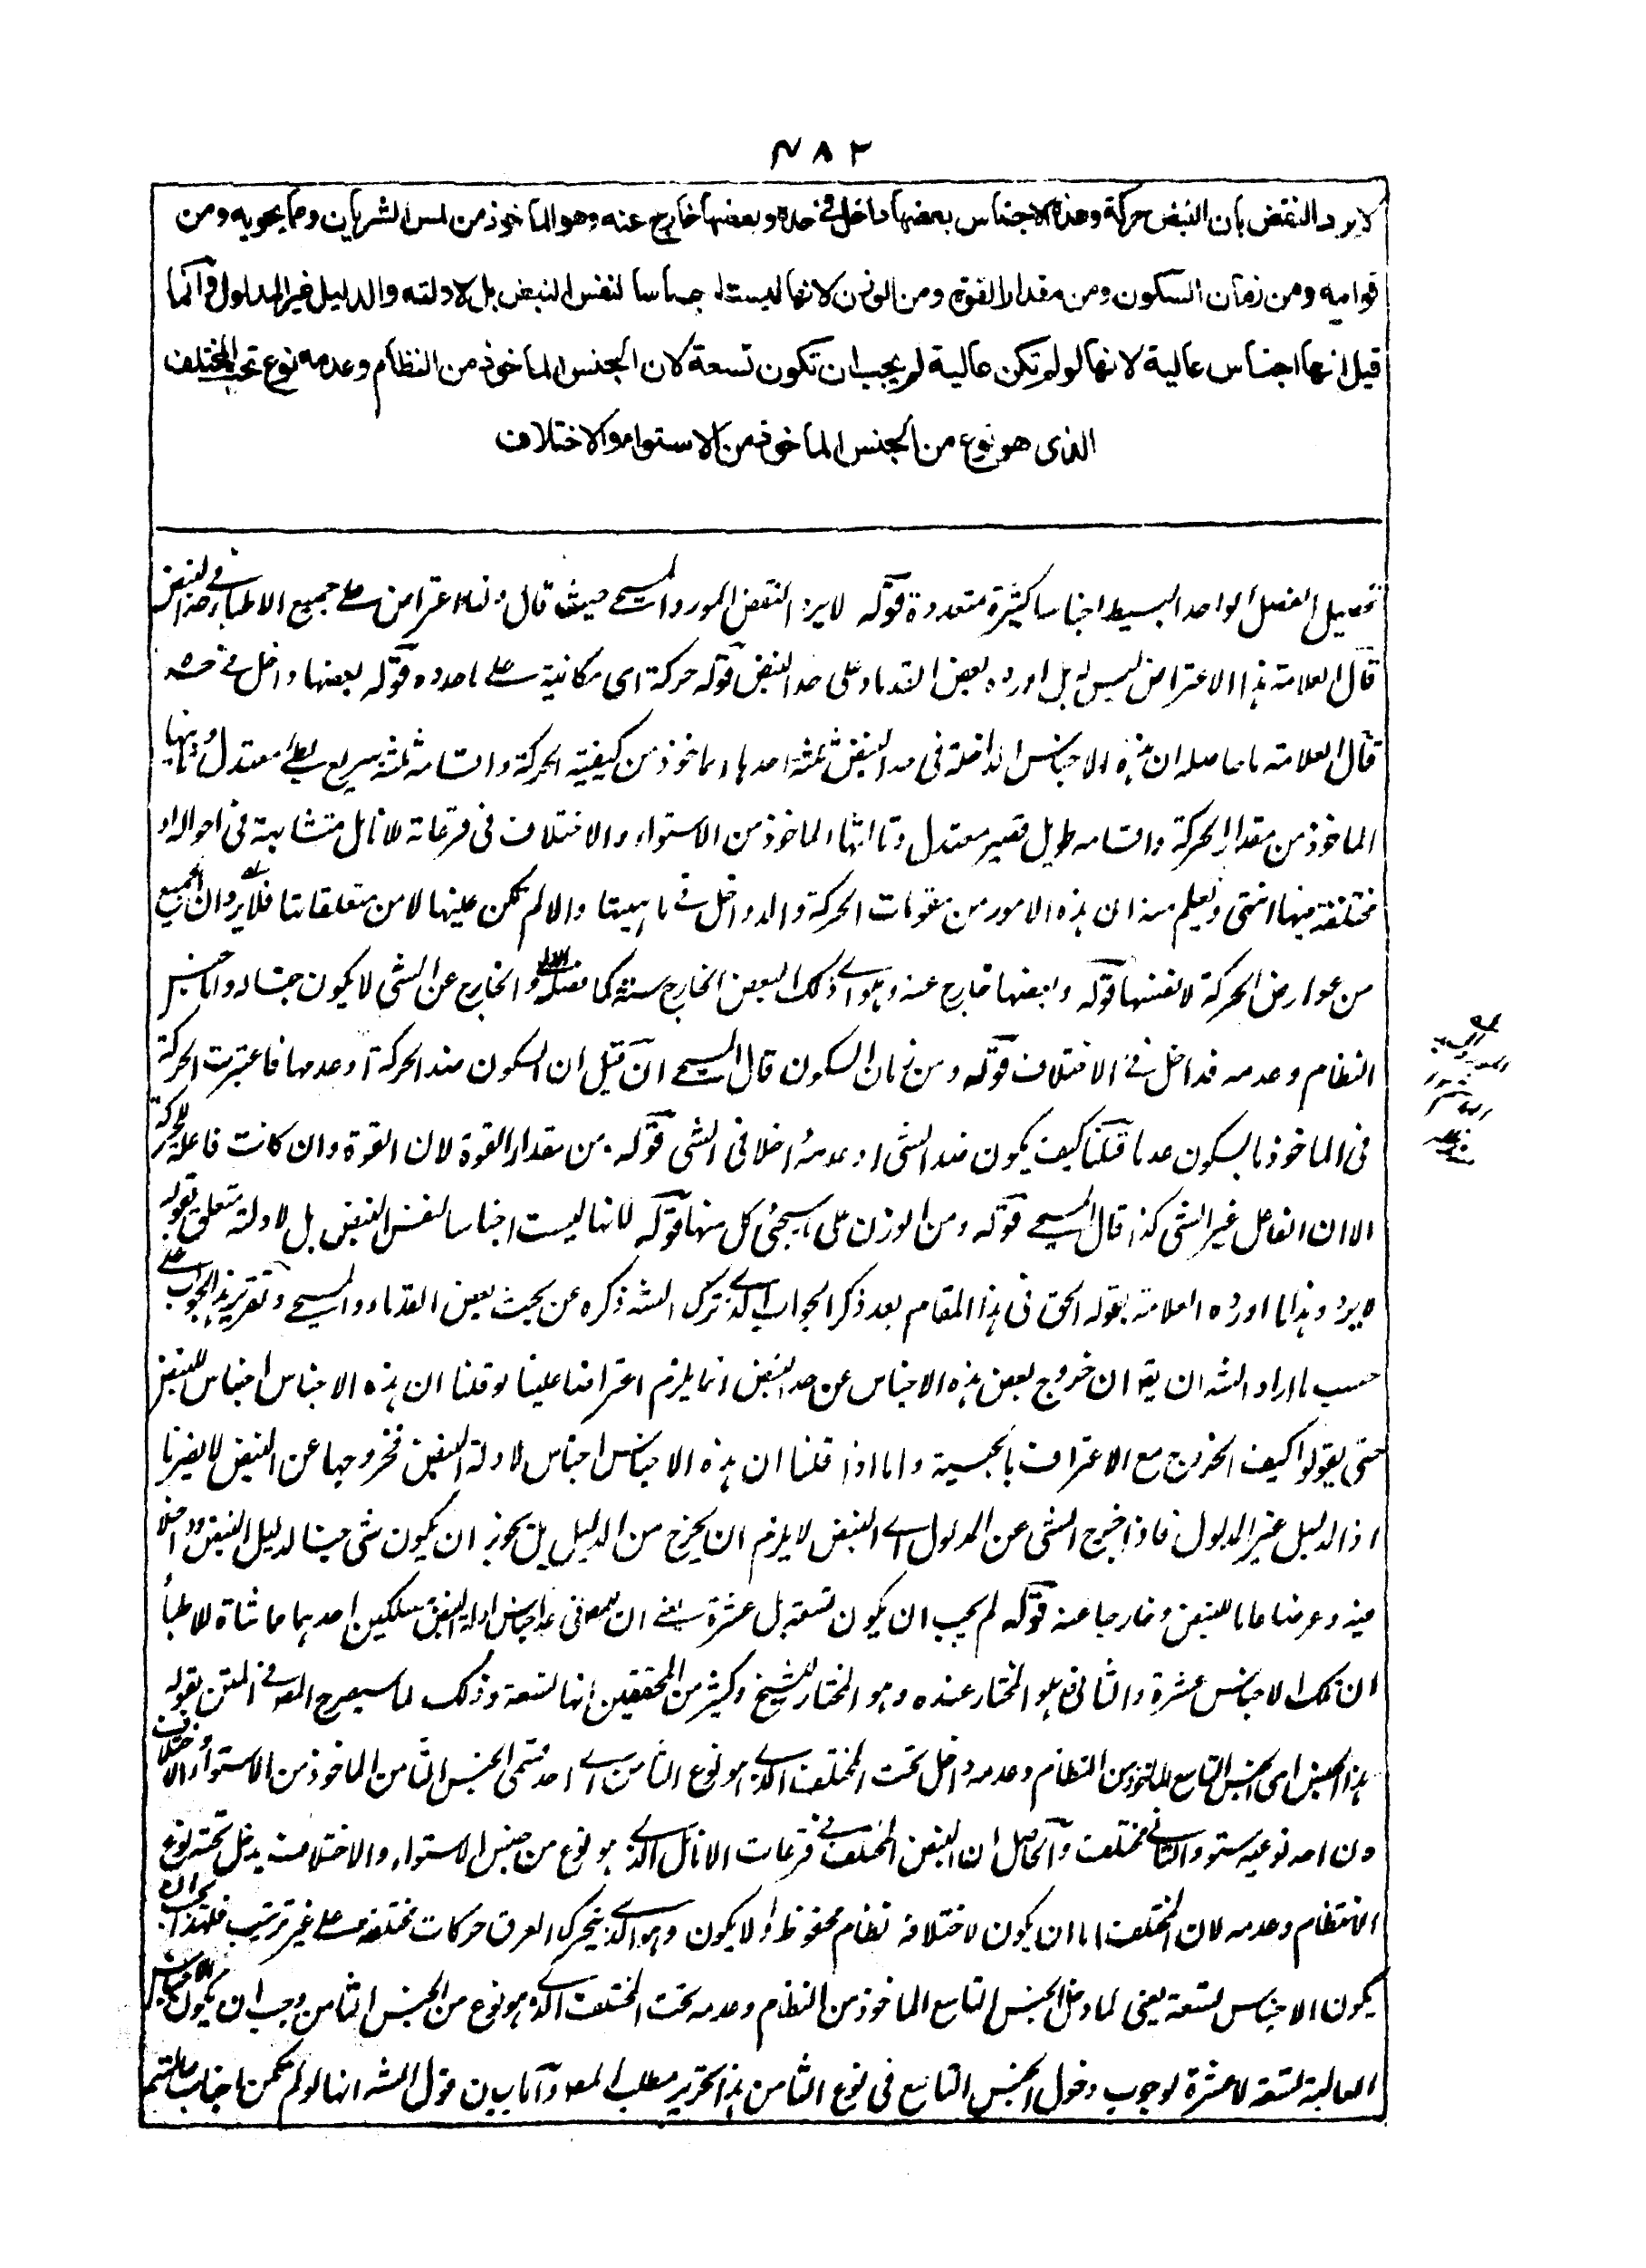 ٤٨٢
لا يرد النقض بان النبض حركة وهذه الاجناس بعضها داخل فى حده وبعضها خارج عنه وهو الماخوذ من لمس الشريان ومما يحويه ومن
قوامه ومن زمان السكون ومن مقدار القوة ومن الوزن لانها ليست اجناسا لنفس النبض بل لادلته والدليل غير المدلول وانما
قيل انها اجناس عالية لانها لو لم تكن عالية لم يجب ان تكون تسعة لان الجنس الماخوذ من النظام وعدمه نوع تحت المختلف
الذى هو نوع من الجنس الماخوذ من الاستواء والاختلاف
الفصل الواحد البسيط اجناسا كثيرة متعددة قوله لا يرد النقض المورد المسيحى حيث قال ولنا اعتراض على جميع الاطباء فى النبض
قال العلامة هذا الاعتراض ليس له بل اورده بعض القدماء على حد النبض قوله حركة اى مكانية على ما حدوه قوله بعضها داخل فى حده
قال العلامة ما حاصله ان هذه الاجناس الداخلة فى حد النبض ثلثة احدها الماخوذ من كيفية الحركة واقسامه ثلثة سريع بطئ معتدل وثانيها
الماخوذ من مقدار الحركة واقسامه طويل قصير معتدل وثالثها الماخوذ من الاستواء والاختلاف فى قرعاته للانامل متشابهة فى احوالها او
مختلفة فيها انتهى ويعلم منه ان هذه الامور من مقومات الحركة والدواخل فى ماهيتها والا لم تكن عينها لا من متعلقاتها فلا يرد ان الجميع
من عوارض الحركة لا نفسها قوله وبعضها خارج عنه وهو اى ذلك البعض الخارج ستة كما فصله والخارج عن الشى لا يكون جنسا له واما جنس
النظام وعدمه فداخل فى الاختلاف قوله ومن زمان السكون قال المسيحى ان قيل ان السكون ضد الحركة او عدمها فاعتبرت الحركة
فى الماخوذ بالسكون عدما قلنا كيف يكون ضد الشى او عدمه داخلا فى الشى قوله ومن مقدار القوة لان القوة وان كانت فاعلة للحركة
الا ان الفاعل غير الشى كذا قال المسيحى قوله ومن الوزن على ما سيجئ كل منها قوله لانها ليست اجناسا لنفس النبض بل لادلته متعلق بقوله
لا يرد وهذا ما اورده العلامة بقوله الحق فى هذا المقام بعد ذكر الجواب الذى ترك الشه ذكره عن بحث بعض القدماء والمسيحى وتقرير هذا الجواب على
حسب ما اراد الشه ان يقو ان خروج بعض هذه الاجناس عن حد النبض انما يلزم اعتراضا علينا لو قلنا ان هذه الاجناس اجناس للنبض
حتى يقولوا كيف الخروج مع الاعتراف بالجنسية واما اذا قلنا ان هذه الاجناس اجناس لادلة النبض فخروجها عن النبض لا يضرنا
اذ الدليل غير المدلول فاذا خرج الشى عن المدلول اى النبض لا يلزم ان يخرج من الدليل بل يجوز ان يكون شى جنسا لدليل النبض وداخلا
فيه وعرضا عاما للنبض وخارجا عنه قوله لم يجب ان يكون تسعة بل عشرة يعنى ان للمص فى عد اجناس ادلة النبض مسلكين احدهما مماشاة للاطباء
ان تلك الاجناس عشرة والثانى هو المختار عنده وهو المختار للشيخ وكثير من المحققين انها تسعة وذلك لما سيصرح المص فى المتن بقوله
هذا الجنس اى الجنس التاسع الماخوذ من النظام وعدمه داخل تحت المختلف الذى هو نوع الثامن اى احد قسمى الجنس الثامن الماخوذ من الاستواء والاختلاف
ون احد نوعيه مستو والثانى مختلف والحاصل ان النبض المختلف فى قرعات الانامل الذى هو نوع من جنس الاستواء والاختلاف يدخل تحته نوع
الانتظام وعدمه لان المختلف اما ان يكون لاختلافه نظام محفوظ او لا يكون وهو الذى يتحرك العرق حركات مختلفة على غير ترتيب فلهذا يجب ان
يكون الاجناس تسعة يعنى لما دخل الجنس التاسع الماخوذ من النظام وعدمه تحت المختلف الذى هو نوع من الجنس الثامن وجب ان يكون الاجناس
العالية تسعة لا عشرة لوجوب دخول الجنس التاسع فى نوع الثامن هذا تحرير مطلب المص واما بيان قول الشه انها لو لم تكن اجناسا عالية لم